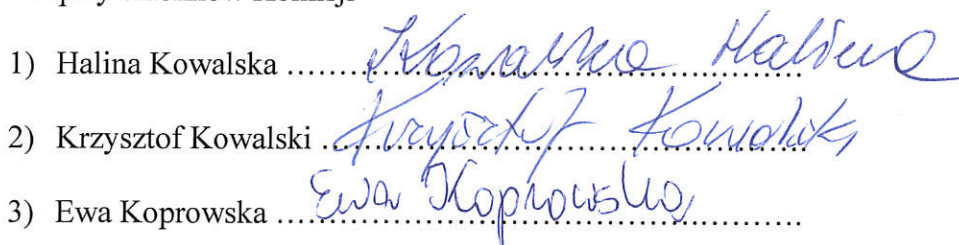 1) Halina Kowalska ........ Kowalska Halina
2) Krzysztof Kowalski ........ Krzysztof Kowalski
3) Ewa Koprowska ........ Ewa Koprowska